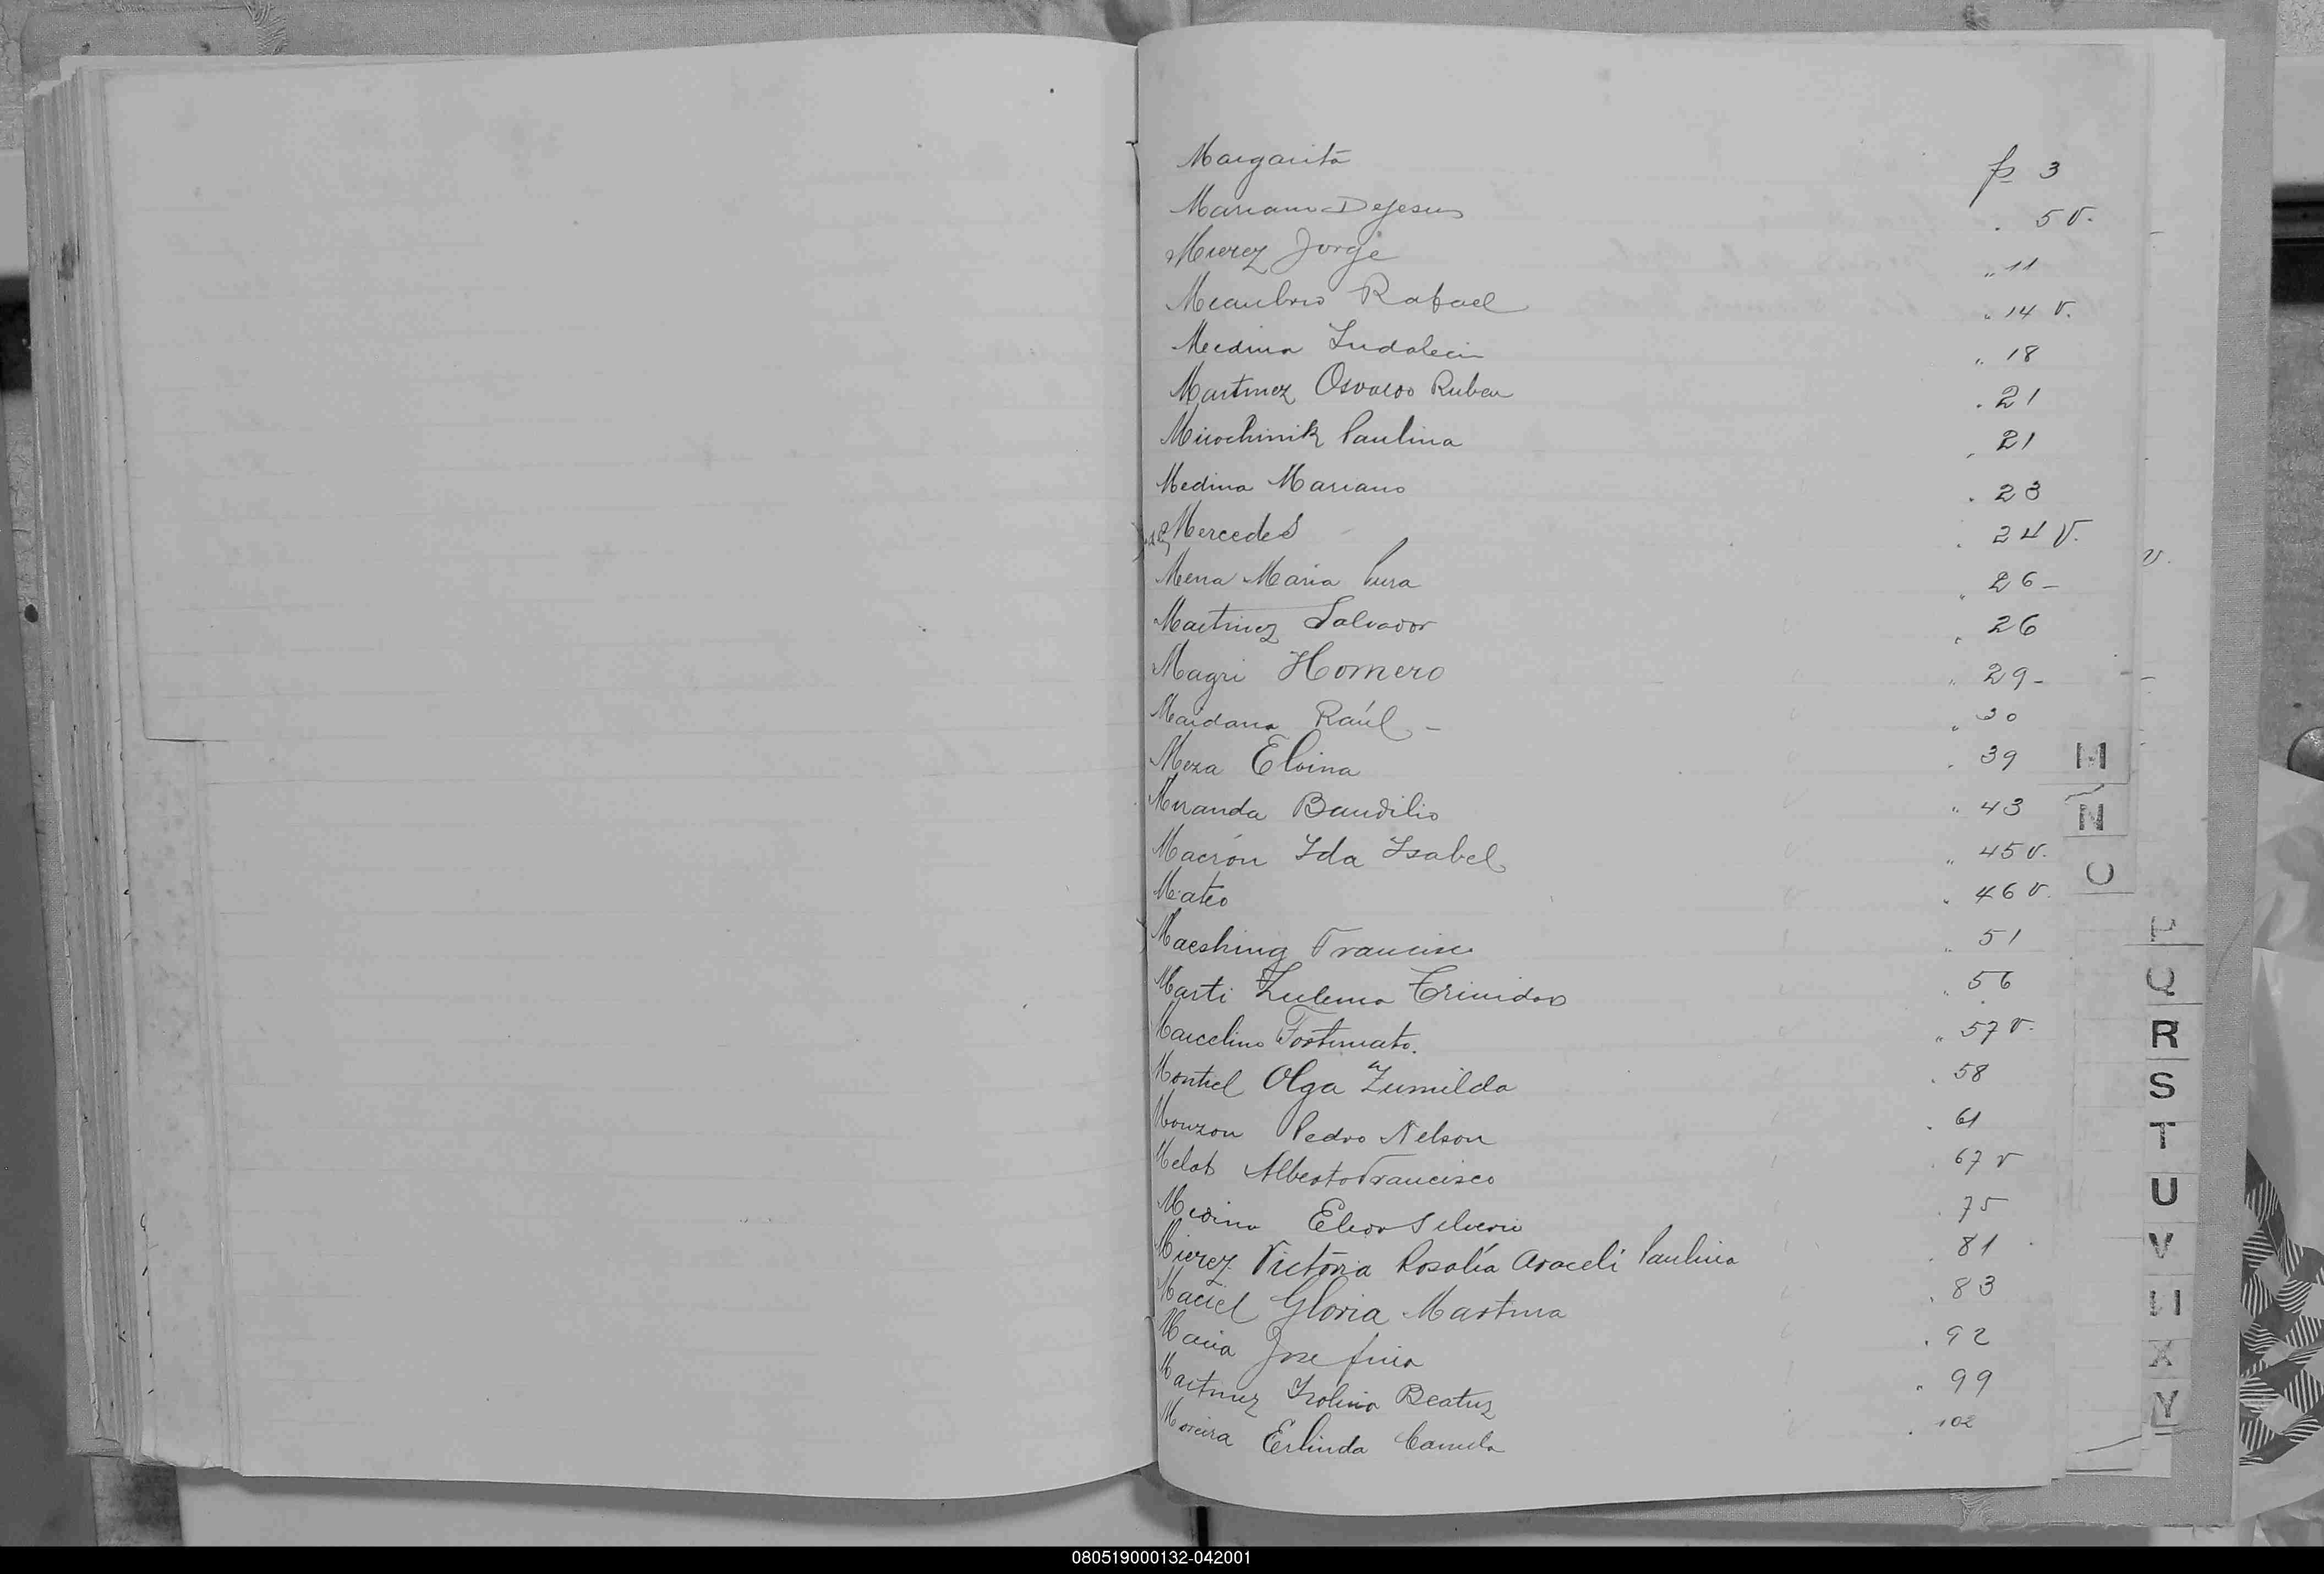 Margarita fs 3
Mariano Dejesus . 5 v.
Mierez Jorge " 11
Rafael " 14 v.
Medina Indalecio " 18
Martinez Osvaldo Ruben . 21
Mirochinik Paulina " 21
Medina Mariano . 23
Mercedes . 24 v.
Mena Maria Pura " 26-
Martinez Salvador " 26
Magri Homero " 29-
Maidana Raúl - " 30
Meza Elvina . 39
M
Miranda Baudilio " 43
N
Macrón Ida Isabel " 45 v.
O
Mateo " 46 v.
Maeshing Francisco " 51
P
Marti Zulema Trinidad " 56
Q
Marcelino Fortunato. " 57 v.
R
Montiel Olga Zumilda . 58
S
Monzon Pedro Nelson . 61
T
Melot Alberto Francisco . 67 v
Medina Elior Silverio . 75
U
Mierez Victoria Rosalía Araceli Paulina . 81
V
Maciel Gloria Martina . 83
Maria Josefina . 92
X
Martinez Isolina Beatriz " 99
Y
Moreira Erlinda Camila . 102
080519000132-042001